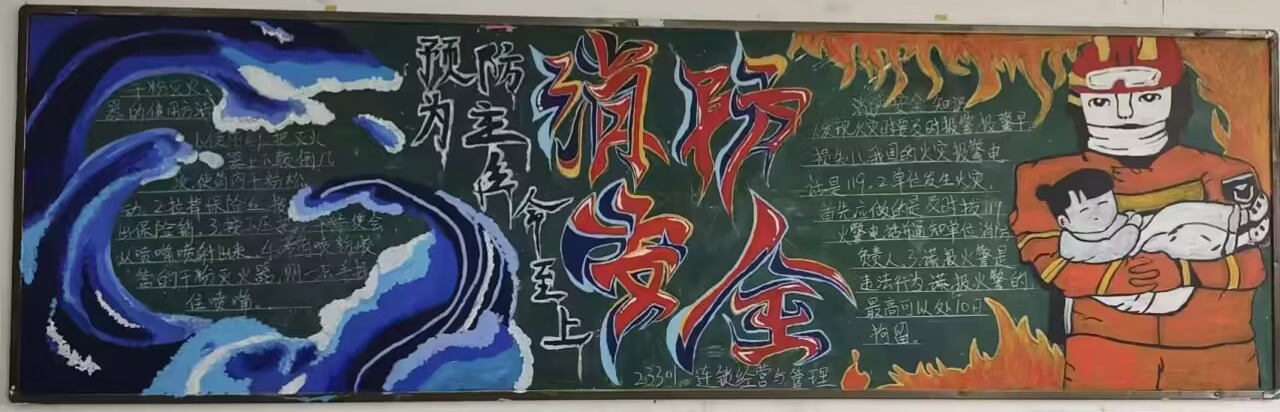 干粉灭火
器的使用方法
上下颠倒几
次,使筒内干粉松
动.2.拔掉保险
出保险销.3.按下压
从喷嘴喷射出来.4.
管的干粉灭火器,则一只手握
住喷嘴.
预防
为主
生命至上
消防
安全
消防安全知识
1.发现火灾时要及时报警,报警早,
损失小,我国的火灾报警电
话是119.2.单位发生火灾,
首先应做的是及时拨119
火警电话通知单位消防
负责人.3.谎报火警是
违法行为.谎报火警的,
最高可以处10日
拘留.
23301 连锁经营与管理